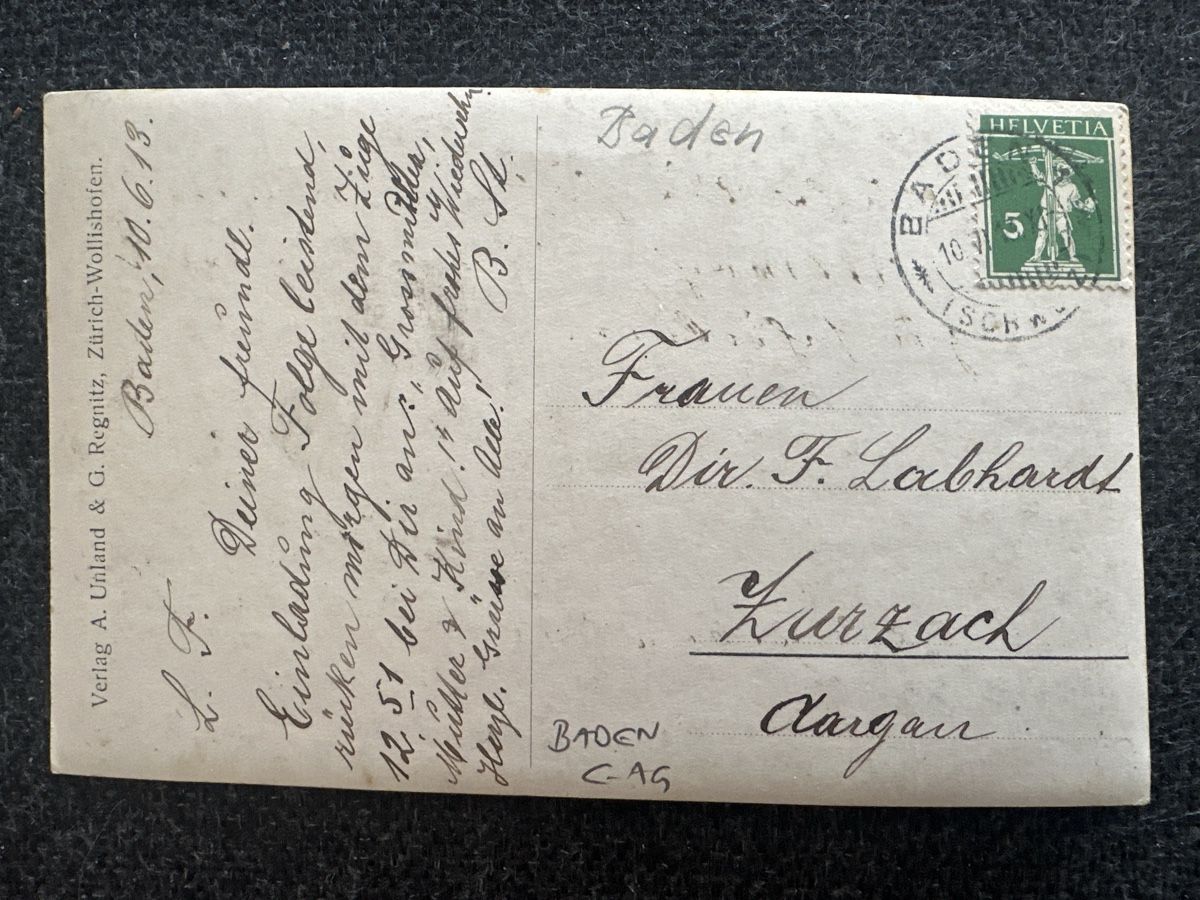 Verlag A. Unland & G. Regnitz, Zürich-Wollishofen.
Baden, 10.6.13.
L. F.
Deiner freundl.
Einladung Folge leistend,
rücken morgen mit dem Zuge
12.51 bei Dir an: Grossmutter,
Mutter & Kind. Auf frohes Wiedersehn
Herzl. Grüsse an Alle! B. St.
Baden
HELVETIA
5
BADEN
10
(SCHW
Frauen
Dir. F. Labhardt
Zurzach
Aargau
BADEN
C-AG